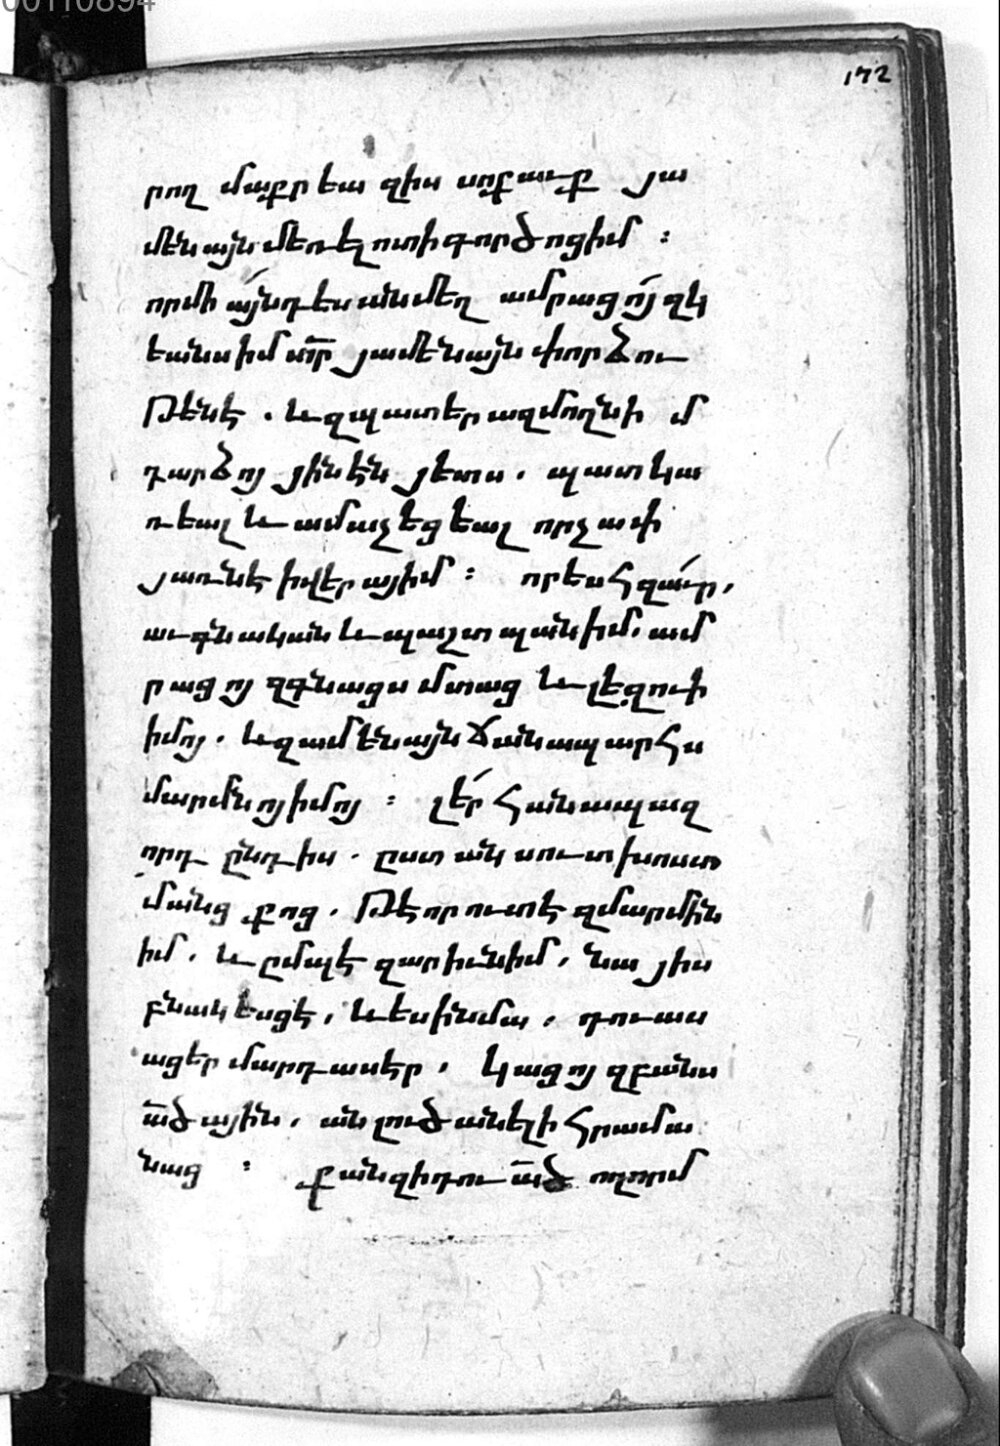 00110894
172
րող մաքրեա զիս սոքաւք յա
մենայն մեռելոտի գործոցիմ ։
որմի այնդէս անմեղ ամրացոյ զկ
եանս իմ տր յամենայն փորձու
թենէ . և զպատերազմողնի մ
դարձոյ յինէն յետս . պատկա
ռեալ և ամաչեցեալ որչափ
յառնէ ի վերայ իմ ։ որես հզաւր,
աւգնական և պաշտպան իմ . ամ
րացոյ զգնացս մտաց և լեզուի
իմոյ . և զամենայն ճանապարհս
մարմնոյ իմոյ ։ լեր հանապազ
որդ ընդ իս . ըստ անսուտ խոստ
մանց քոց . թե որ ուտէ զմարմին
իմ . և ըմպէ զարիւնիմ , նա յիս
բնակեսցէ , և ես ինմա , դու աս
ացեր մարդասեր , կացոյ զբանս
ած ային , անլուծանելի հրամա
նաց ։ քանզի դու ած ողորմ